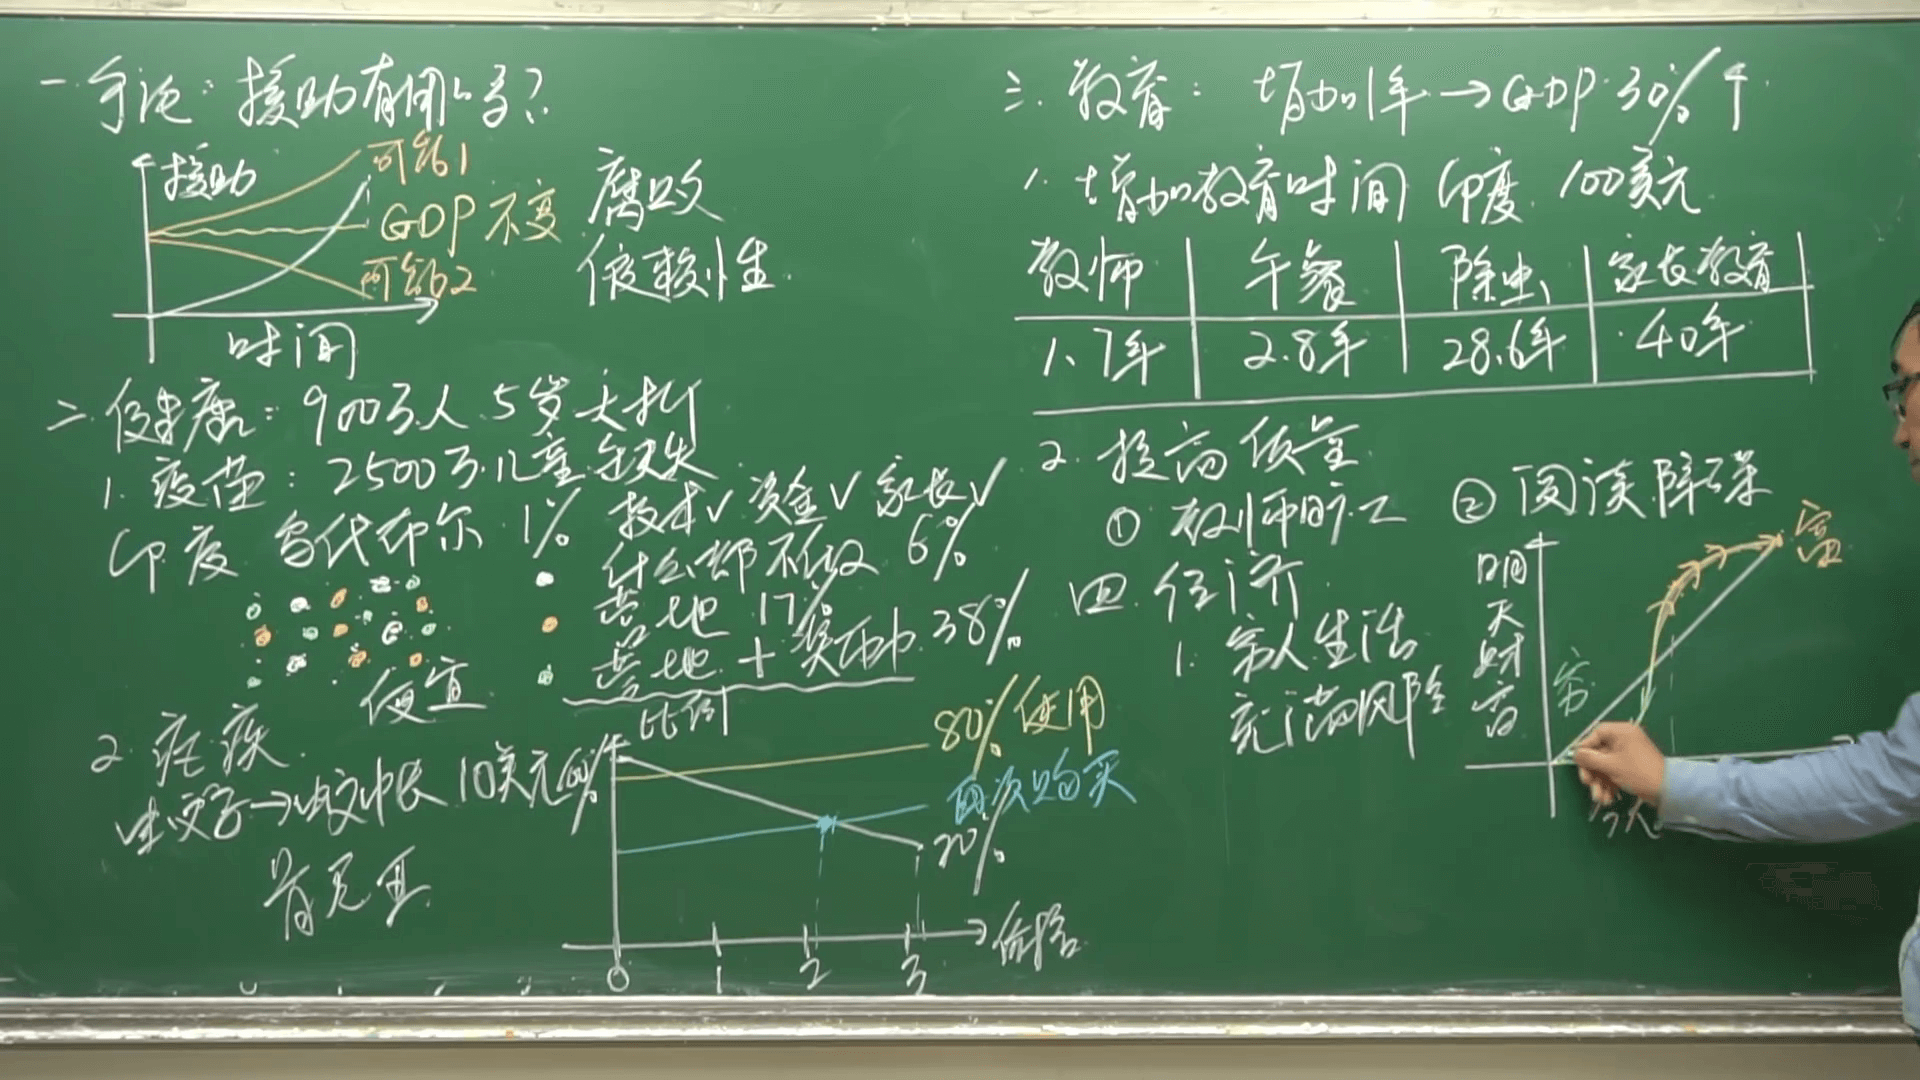 一. 争论: 援助有用吗?
援助
可能1
GDP不变
可能2
时间
腐败
依赖性
二. 健康: 900万人 5岁夭折
1. 疫苗: 2500万儿童缺失
印度 乌代布尔 1%
技术√ 资金√ 家长√
什么都不做 6%
营地 17%
营地 + 奖励 38%
便宜
2. 疟疾
蚊子→蚊帐 10美元
肯尼亚
比例
80% 使用
再次购买
20%
0 1 2 3
价格
三. 教育: 增加1年→GDP 30%↑
1. 增加教育时间 印度 100美元
教师 午餐 除虫 家长教育
1.7年 2.8年 28.6年 40年
2. 提高质量
① 教师旷工
② 阅读障碍
四. 经济
1. 穷人生活
充满风险
明天财富
穷
富